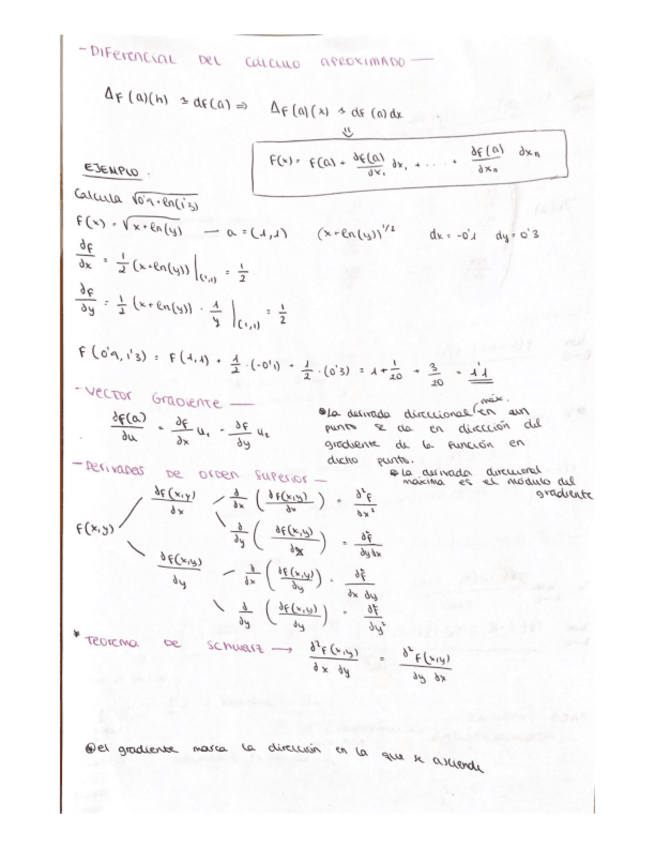 - DIFERENCIAL DEL CÁLCULO APROXIMADO —
Δf(a)(h) ≈ df(a) ⇒ Δf(a)(x) ≈ df(a)dx
⇓
F(x) = F(a) + ∂f(a)/∂x₁ dx₁ + .... + ∂f(a)/∂xₙ dxₙ
EJEMPLO.
Calcula √(0'9 + ln(1'3))
F(x) = √(x + ln(y)) — a = (1,1) (x + ln(y))^1/2 dx = -0'1 dy = 0'3
∂f/∂x = 1/2 (x + ln(y)) |(1,1) = 1/2
∂f/∂y = 1/2 (x + ln(y)) · 1/y |(1,1) = 1/2
F(0'9, 1'3) = F(1,1) + 1/2 · (-0'1) + 1/2 · (0'3) = 1 + 1/20 + 3/20 = 1'1
- VECTOR GRADIENTE —
∂f(a)/∂u = ∂f/∂x u₁ - ∂f/∂y u₂
La derivada direccional máx. en un
punto se da en dirección del
gradiente de la función en
dicho punto.
La derivada direccional
máxima es el módulo del
gradiente
- Derivadas de orden superior —
F(x,y)
∂f(x,y)/∂x — ∂/∂x (∂f(x,y)/∂x) = ∂²f/∂x²
∂/∂y (∂f(x,y)/∂x) = ∂²f/∂y∂x
∂f(x,y)/∂y — ∂/∂x (∂f(x,y)/∂y) = ∂²f/∂x ∂y
∂/∂y (∂f(x,y)/∂y) = ∂²f/∂y²
* TEOREMA DE SCHWARZ → ∂²f(x,y)/∂x ∂y = ∂²f(x,y)/∂y ∂x
el gradiente marca la dirección en la que se asciende